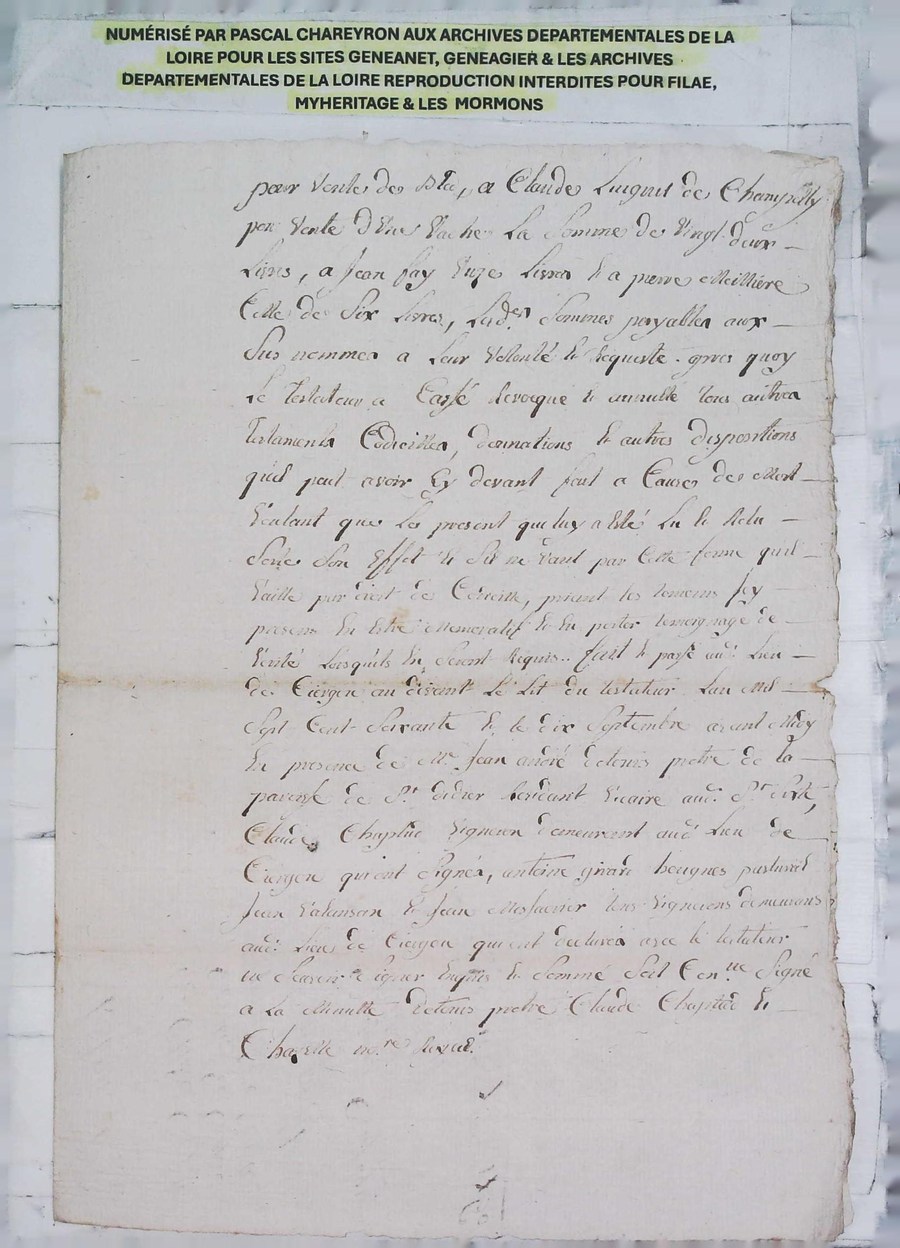 NUMÉRISÉ PAR PASCAL CHAREYRON AUX ARCHIVES DEPARTEMENTALES DE LA
LOIRE POUR LES SITES GENEANET, GENEAGIER & LES ARCHIVES
DEPARTEMENTALES DE LA LOIRE REPRODUCTION INTERDITES POUR FILAE,
MYHERITAGE & LES MORMONS
pour vente de Bled, a Claude de
pour vente d'Une Vache La Somme de Vingt deux
Livres, a Jean fay Unze Livres & a pierre Meilliere
Celle de Six Livres, Lad.es Sommes payables aux
Sus nommes a Leur Volonté & Requiste. apres quoy
Le Testateur a Cassé Revocqué & annullé tous autres
Testaments Codicilles, donnations & autres dispositions
quil peut avoir Cy devant fait a Cause de Mort
Voulant que Le present qui luy a Esté Lu & Relu
Sorte Son Effet & Sil ne Vaut par Cette forme quil
Vaille par droit de Codicille, priant les temoins Icy
presens En Estre Memoratif & En porter temoignage de
Verité Lorsquils En Seront Requis.. fait & passé aud. Lieu
de Ciergue au devant Le Lit du testateur Lan Mil
Sept Cent Soixante & le dix Septembre avant Midy
En presence de M.re Jean andré detours pretre de la
paroisse de S.t didier Vicaire aud. S.t
Claude Chaptud Vigneron demeurant aud. Lieu de
Ciergue qui ont Signés, antoine girard
Jean Valansan & Jean tous Vignerons demeurans
aud. Lieu de Ciergue qui ont declarés avec le testateur
ne Scavoir Signer Enquis & Sommé Soit Signé
a La Minutte detours pretre Claude Chaptud &
Chazelle no.re Royal.